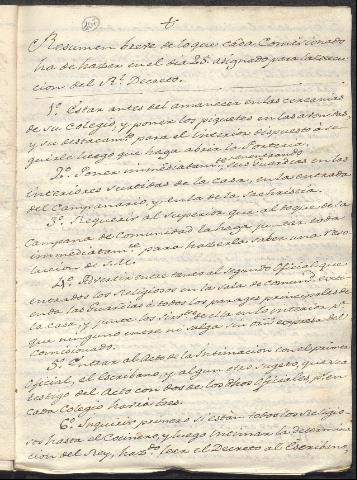 Resumen breve de lo que cada Comisionado
ha de hazer en el dia 25. asignado para la execu-
cion del Rl. Decreto.
1º. Estar antes del amanecer en las cercanias
de su Colegio, y poner los piquetes en las avenidas,
y su destacamto. para el interior dispuesto à se-
guirle luego que haga abrir la Porteria.
2º. Poner inmediatamte. sus Guardias en las
interiores salidas de la Casa, en la entrada
del Campanario, y en la de la Sachristia.
3º. Requerir al Superior que al toque de la
Campana de Comunidad la haga juntar toda
inmediatamte. para hazerla saber una Reso-
lucion de S.M.
4º. Advertir entre tanto al segundo Oficial que
entrados los Religiosos en la sala de Comund. extien-
da las Guardias à todos los parages principales de
la casa, y junte los de ella en lo interior pa.
que ninguno entre ni salga sin orn. expresa del
comisionado.
5º. Entrar al Acto de la Intimacion con el primer
Oficial, el Escribano, y algun otro Sugeto, que sea
testigo del Acto con dos de los dhos Oficiales pr. en
cada Colegio havrà tres.
6º. Inquirir primero si están todos los Religio-
sos hasta el Cocinero, y luego intimar la determina-
cion del Rey, hazdo. leer el Decreto al Escribano,